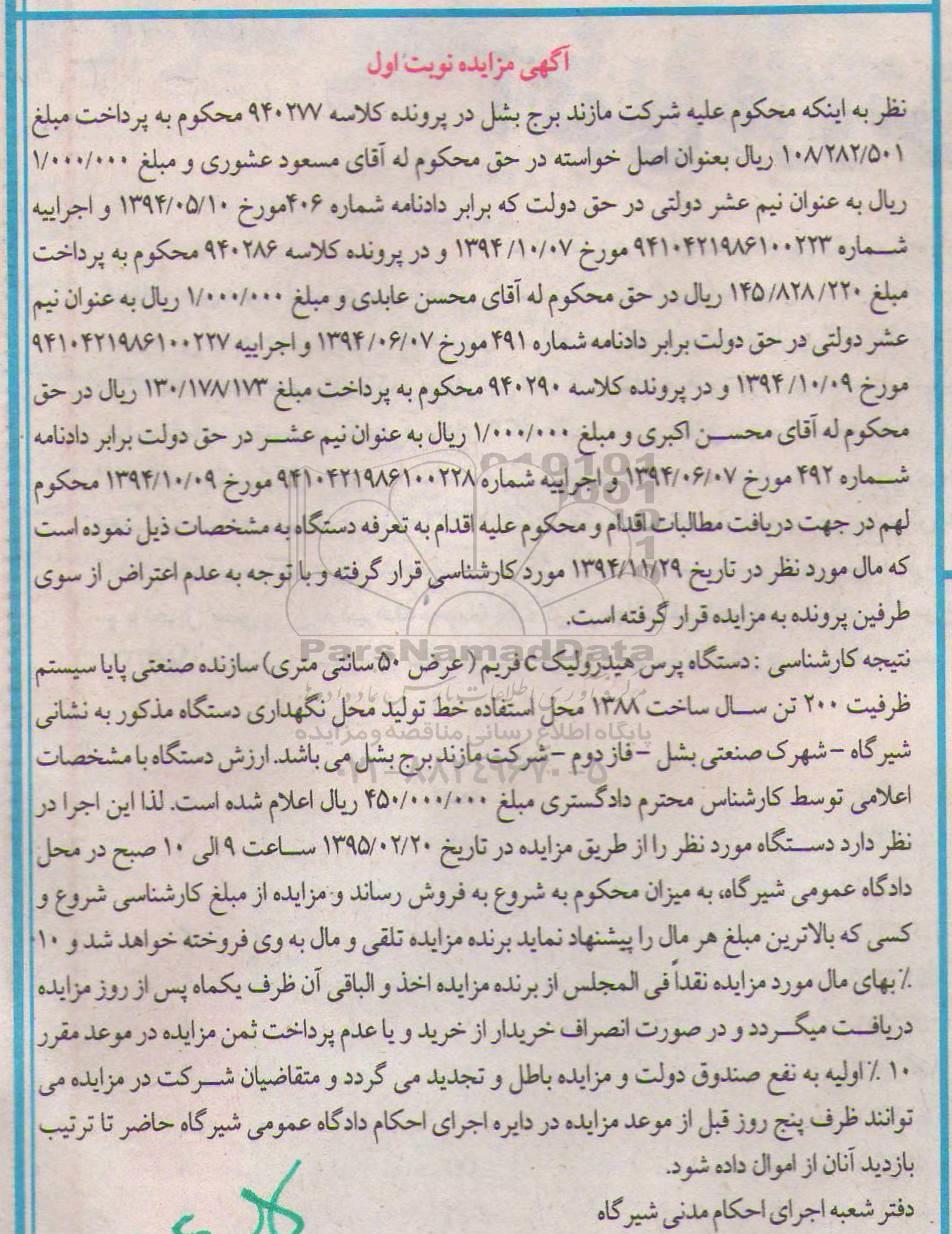 آگهی مزایده نوبت اول
نظر به اینکه محکوم علیه شرکت مازند برج بشل در پرونده کلاسه ۹۴۰۲۷۷ محکوم به پرداخت مبلغ
۱۰۸/۲۸۲/۵۰۱ ریال بعنوان اصل خواسته در حق محکوم له آقای مسعود عشوری و مبلغ ۱/۰۰۰/۰۰۰
ریال به عنوان نیم عشر دولتی در حق دولت که برابر دادنامه شماره ۴۰۶مورخ ۱۳۹۴/۰۵/۱۰ و اجراییه
شماره ۹۴۱۰۴۲۱۹۸۶۱۰۰۲۲۳ مورخ ۱۳۹۴/۱۰/۰۷ و در پرونده کلاسه ۹۴۰۲۸۶ محکوم به پرداخت
مبلغ ۱۴۵/۸۲۸/۲۲۰ ریال در حق محکوم له آقای محسن عابدی و مبلغ ۱/۰۰۰/۰۰۰ ریال به عنوان نیم
عشر دولتی در حق دولت برابر دادنامه شماره ۴۹۱ مورخ ۱۳۹۴/۰۶/۰۷ و اجراییه ۹۴۱۰۴۲۱۹۸۶۱۰۰۲۲۷
مورخ ۱۳۹۴/۱۰/۰۹ و در پرونده کلاسه ۹۴۰۲۹۰ محکوم به پرداخت مبلغ ۱۳۰/۱۷۸/۱۷۳ ریال در حق
محکوم له آقای محسن اکبری و مبلغ ۱/۰۰۰/۰۰۰ ریال به عنوان نیم عشر در حق دولت برابر دادنامه
شماره ۴۹۲ مورخ ۱۳۹۴/۰۶/۰۷ و اجراییه شماره ۹۴۱۰۴۲۱۹۸۶۱۰۰۲۲۸ مورخ ۱۳۹۴/۱۰/۰۹ محکوم
لهم در جهت دریافت مطالبات اقدام و محکوم علیه اقدام به تعرفه دستگاه به مشخصات ذیل نموده است
که مال مورد نظر در تاریخ ۱۳۹۴/۱۱/۲۹ مورد کارشناسی قرار گرفته و با توجه به عدم اعتراض از سوی
طرفین پرونده به مزایده قرار گرفته است.
ParsNamadData
نتیجه کارشناسی : دستگاه پرس هیدرولیک C فریم ( عرض ۵۰ سانتی متری) سازنده صنعتی پایا سیستم
ظرفیت ۲۰۰ تن سال ساخت ۱۳۸۸ محل استفاده خط تولید محل نگهداری دستگاه مذکور به نشانی
پایگاه اطلاع رسانی مناقصه و مزایده
شیرگاه – شهرک صنعتی بشل – فاز دوم – شرکت مازند برج بشل می باشد. ارزش دستگاه با مشخصات
اعلامی توسط کارشناس محترم دادگستری مبلغ ۴۵۰/۰۰۰/۰۰۰ ریال اعلام شده است. لذا این اجرا در
نظر دارد دستگاه مورد نظر را از طریق مزایده در تاریخ ۱۳۹۵/۰۲/۲۰ ساعت ۹ الی ۱۰ صبح در محل
دادگاه عمومی شیرگاه، به میزان محکوم به شروع به فروش رساند و مزایده از مبلغ کارشناسی شروع و
کسی که بالاترین مبلغ هر مال را پیشنهاد نماید برنده مزایده تلقی و مال به وی فروخته خواهد شد و ۱۰
٪ بهای مال مورد مزایده نقداً فی المجلس از برنده مزایده اخذ و الباقی آن ظرف یکماه پس از روز مزایده
دریافت میگردد و در صورت انصراف خریدار از خرید و یا عدم پرداخت ثمن مزایده در موعد مقرر
۱۰ ٪ اولیه به نفع صندوق دولت و مزایده باطل و تجدید می گردد و متقاضیان شرکت در مزایده می
توانند ظرف پنج روز قبل از موعد مزایده در دایره اجرای احکام دادگاه عمومی شیرگاه حاضر تا ترتیب
بازدید آنان از اموال داده شود.
دفتر شعبه اجرای احکام مدنی شیرگاه